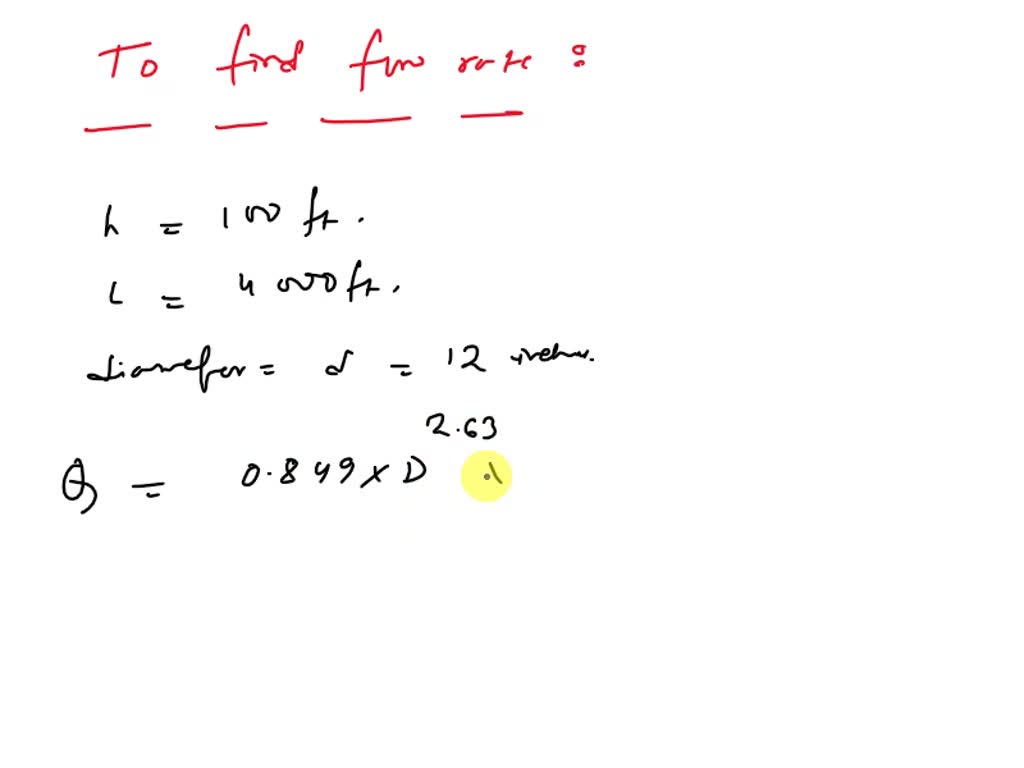 To find flow rate :
h = 100 ft.
L = 4000 ft.
diameter = d = 12 inches.
Q = 0.849 x D^2.63